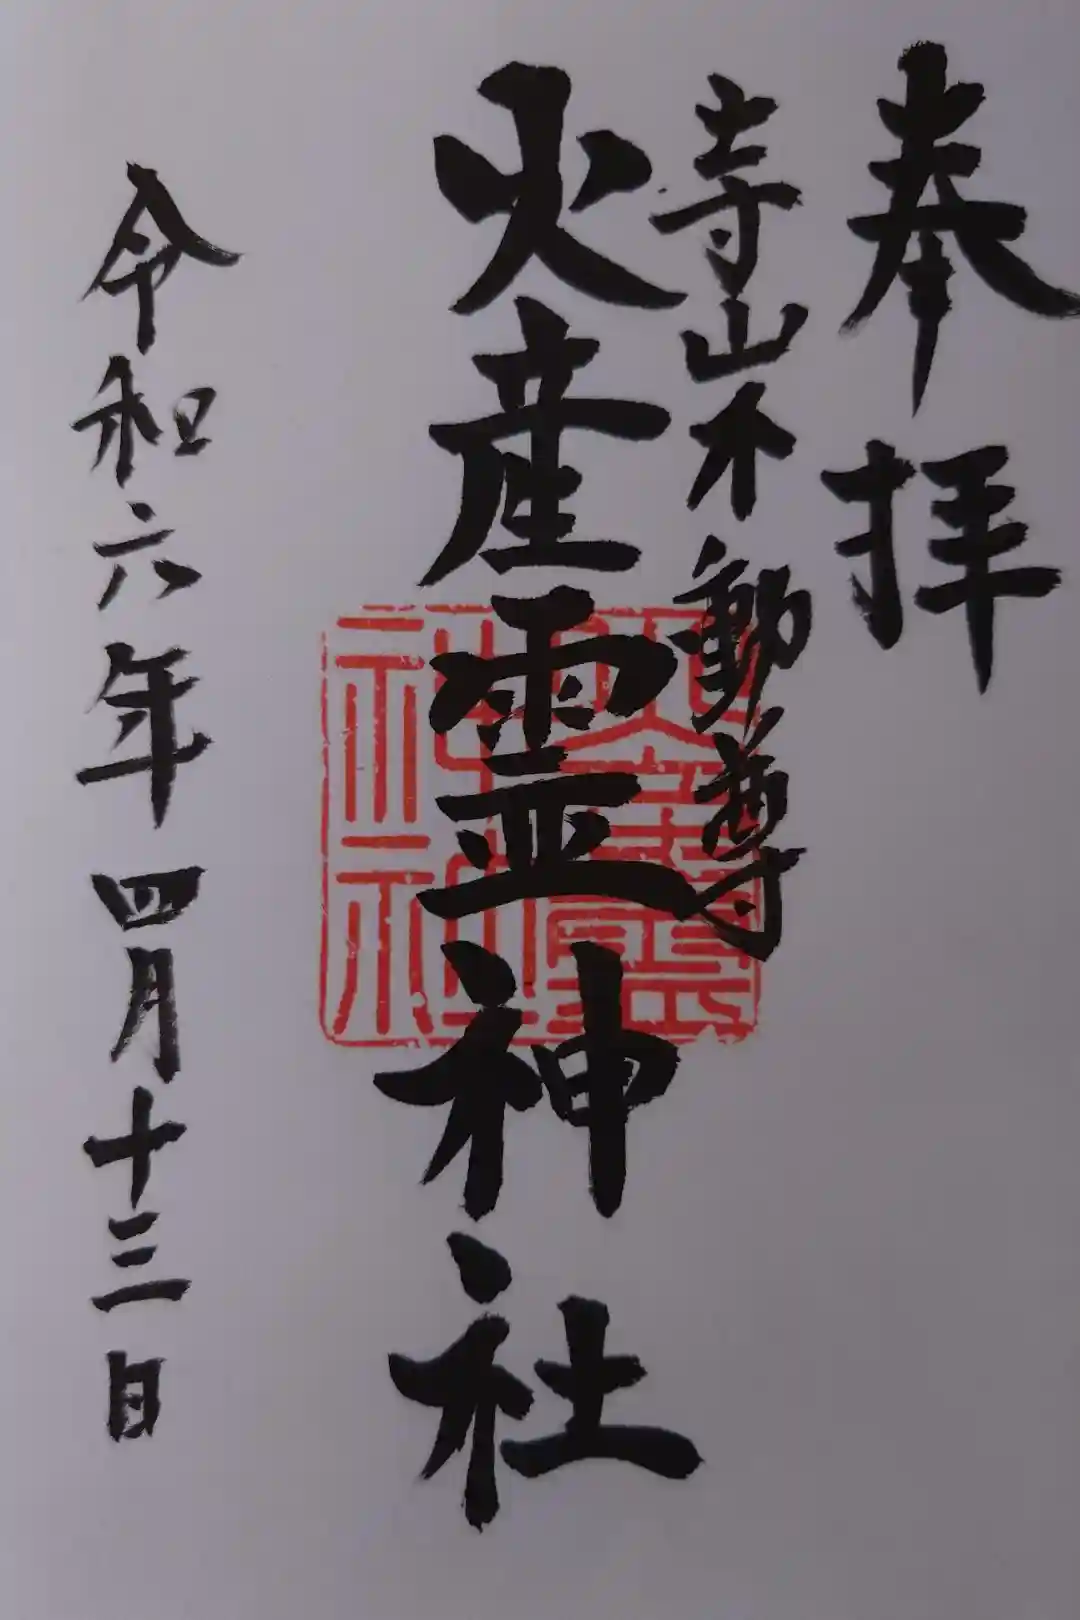 奉拝
寺山不動尊
火産霊神社
令和六年四月十三日
火産霊
神社